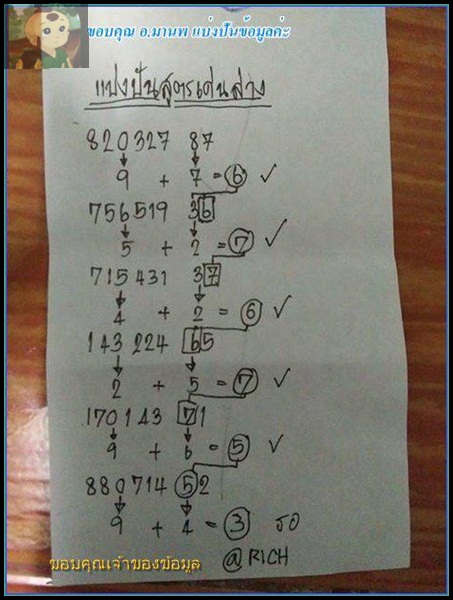 ขอบคุณ อ.มานพ แบ่งปันข้อมูลค่ะ
แบ่งปันสูตรเด่นล่าง
820327 87
9 + 7 = 6 ✓
756519 36
5 + 2 = 7 ✓
715431 37
4 + 2 = 6 ✓
143224 65
2 + 5 = 7 ✓
170143 71
9 + 6 = 5 ✓
880714 52
9 + 4 = 3 รอ
@RICH
ขอบคุณเจ้าของข้อมูล